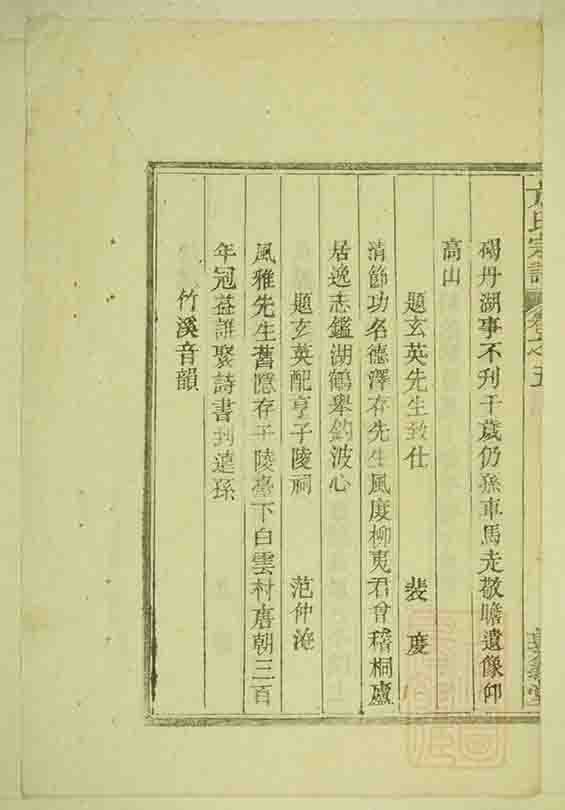 氏宗譜 卷之五
碣丹湖事不刊千歲仍孫車馬走敬瞻遺像仰
高山
題玄英先生致仕 裴度
清節功名德澤存先生風度柳夷君曾稽桐廬
居逸志鑑湖鶴舉釣波心
題玄英配享子陵祠 范仲淹
風雅先生舊隱存子陵臺下白雲村唐朝三百
年冠蓋誰聚詩書到遠孫
竹溪音韻